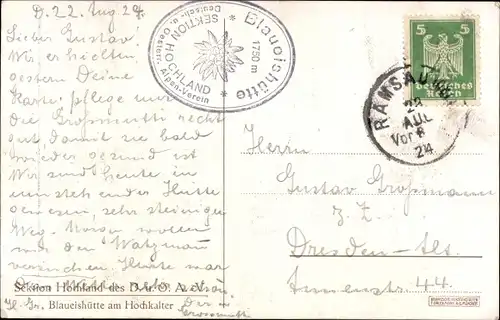 D. 22. Aug 24.
Lieber Gustav!
Wir erhielten
gestern Deine
Karte, pflege nur
die Großmutti recht
gut, damit sie bald
wieder gesund ist
Wir sind heute in
umstehender Hütte
gewesen, sehr steiniger
Weg. Morgen wollen
wir den Watzmann
versuchen. Heute war
Sektion Hohland des D. u. O. A.-V.
H. Gr. Blaueishütte am Hochkalter
Großmutti
Blaueishütte
1750 m
SEKTION HOCHLAND
Deutsch. u. Oesterr.
Alpen-Verein
5 5
Deutsches
Reich
RAMSAU
22
AUG.
Vor 8
24
Herrn
Gustav Großmann
z. Z.
Dresden-Als.
44.